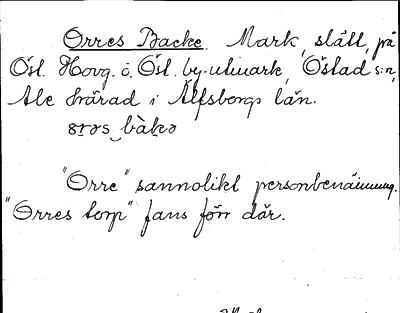 Orres Backe. Mark, slätt, på
Östl. Hovg. o. Östl. by-utmark, Östad s:n,
Ale härad i Älfsborgs län.
"Orre" sannolikt personbenämning.
"Orres torp" fans förr där.